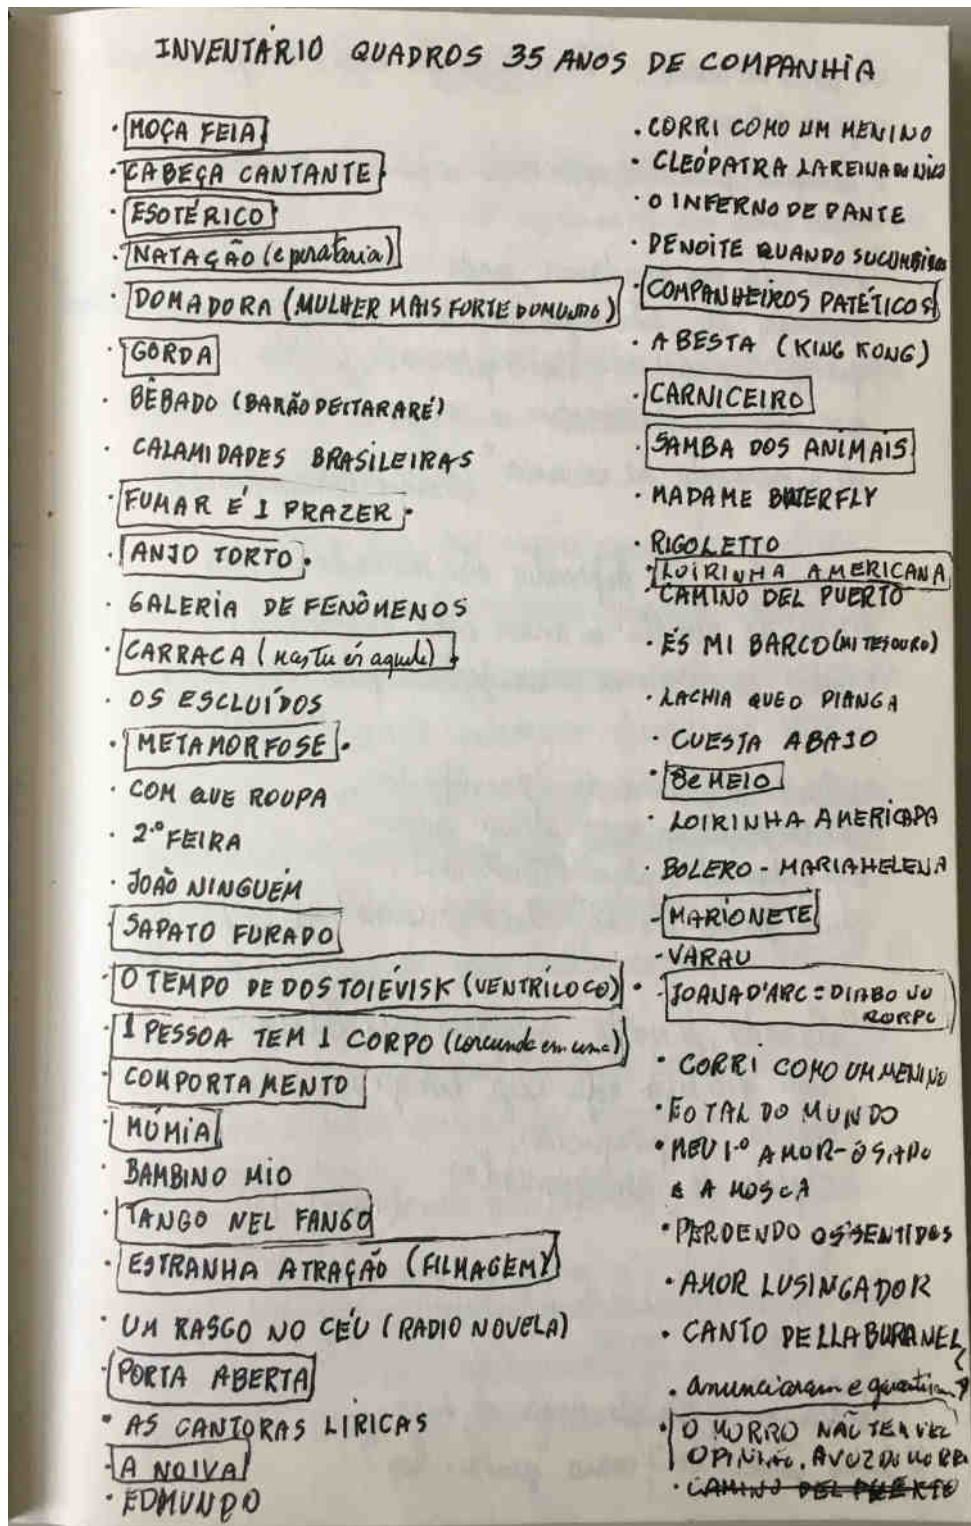 INVENTÁRIO QUADROS 35 ANOS DE COMPANHIA
· MOÇA FEIA
· CABEÇA CANTANTE
· ESOTÉRICO
· NATAÇÃO (e pirataria)
· DOMADORA (MULHER MAIS FORTE DO MUNDO)
· GORDA
· BÊBADO (BARÃO DE ITARARÉ)
· CALAMIDADES BRASILEIRAS
· FUMAR É 1 PRAZER ·
· ANJO TORTO ·
· GALERIA DE FENÔMENOS
· CARRACA (mas tu és aquele)
· OS ESCLUÍDOS
· METAMORFOSE ·
· COM QUE ROUPA
· 2ª FEIRA
· JOÃO NINGUÉM
· SAPATO FURADO
· O TEMPO DE DOSTOIÉVISK (VENTRÍLOCO) ·
· 1 PESSOA TEM 1 CORPO (corcunda em cena)
· COMPORTAMENTO
· MÚMIA
· BAMBINO MIO
· TANGO NEL FANGO
· ESTRANHA ATRAÇÃO (FILMAGEM)
· UM RASGO NO CÉU (RADIO NOVELA)
· PORTA ABERTA
· AS CANTORAS LÍRICAS
· A NOIVA
· EDMUNDO
· CORRI COMO UM MENINO
· CLEÓPATRA LA REINA DO NILO
· O INFERNO DE DANTE
· DE NOITE QUANDO SUCUMBIRES
· COMPANHEIROS PATÉTICOS
· A BESTA (KING KONG)
· CARNICEIRO
· SAMBA DOS ANIMAIS
· MADAME BUTERFLY
· RIGOLETTO
· LOIRINHA AMERICANA
CAMINO DEL PUERTO
· ÉS MI BARCO (MI TESOURO)
· LACHIA QUE O PIANGA
· CUESTA ABAJO
· 8 e MEIO
· LOIRINHA AMERICAPA
· BOLERO - MARIA HELENA
- MARIONETE
- VARAU
- JOANA D'ARC = DIABO NO
CORPO
· CORRI COMO UM MENINO
· E O TAL DO MUNDO
· MEU 1º AMOR - O SAPO
& A MOSCA
· PERDENDO OS SENTIDOS
· AMOR LUSINGADOR
· CANTO DELLA BURANEL
· anunciaram e garantiram
· O MORRO NÃO TEM VEZ
OPINIÃO. A VOZ DO MORRO
· CAMINO DEL PUERTO